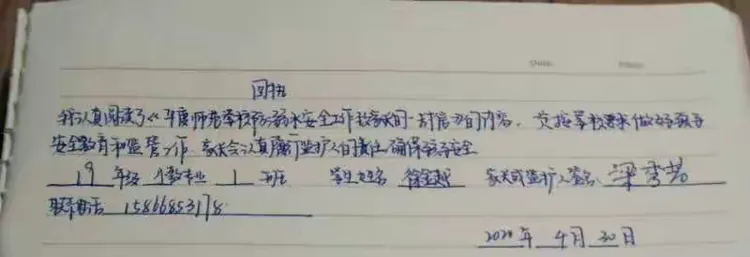 回执
我认真阅读了《平度师范学校防溺水安全工作致家长的一封信》的内容，并按学校要求做好孩子
安全教育和监管工作。家长会认真履行监护人的责任，确保孩子安全
19 年级 专业 1 班 学生姓名 徐 家长或监护人签名：梁秀芳
联系电话 15866853178
2020年 4月 30日